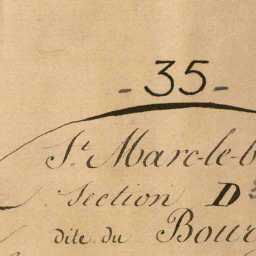 - 35 -
St Marc-le-b
Section D
dite du Bour